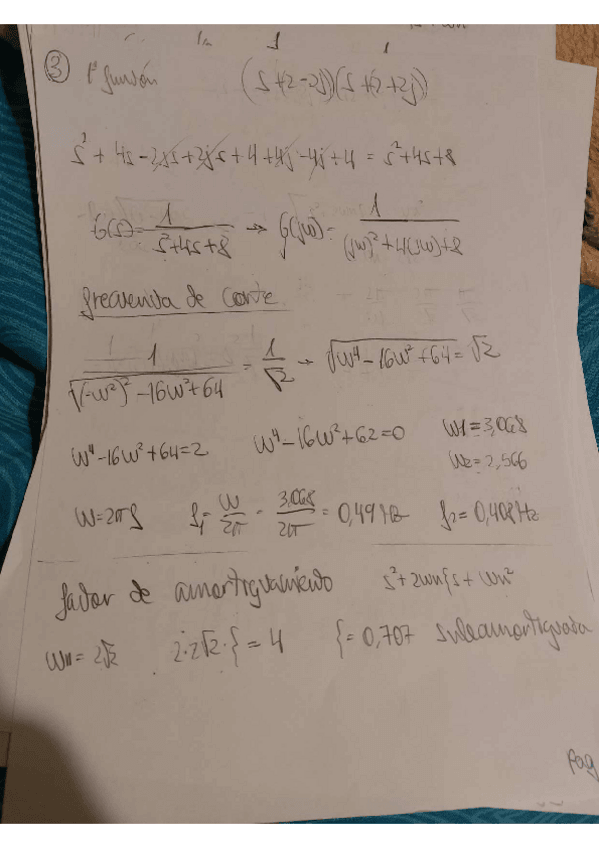 ③ 1ª función (s+2-2j)(s+2+2j)
s²+4s-2js+2js+4+4j-4j+4 = s²+4s+8
G(s)= 1/(s²+4s+8) → G(jw)= 1/((jw)²+4(jw)+8)
frecuencia de corte
1/√((-w²)²-16w²+64) = 1/√2 → √(w⁴-16w²+64) = √2
w⁴-16w²+64=2 w⁴-16w²+62=0 w1=3,068
w2=2,566
w=2πf f1= w/2π = 3,068/2π = 0,49Hz f2=0,408Hz
factor de amortiguamiento s²+2wnξs+wn²
wn=2√2 2·2√2·ξ=4 ξ=0,707 subamortiguada
Pag